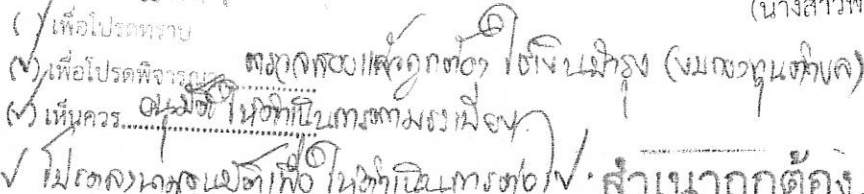 (นางสาวพ
( ) เพื่อโปรดทราบ
(✓) เพื่อโปรดพิจารณา ตรวจสอบแล้วถูกต้อง ใช้เงินบำรุง (งบกองทุนตำบล)
(✓) เห็นควร อนุมัติ ให้ดำเนินการตามระเบียบ
✓ โปรดลงนามอนุมัติเพื่อให้ดำเนินการต่อไป
สำเนาถูกต้อง